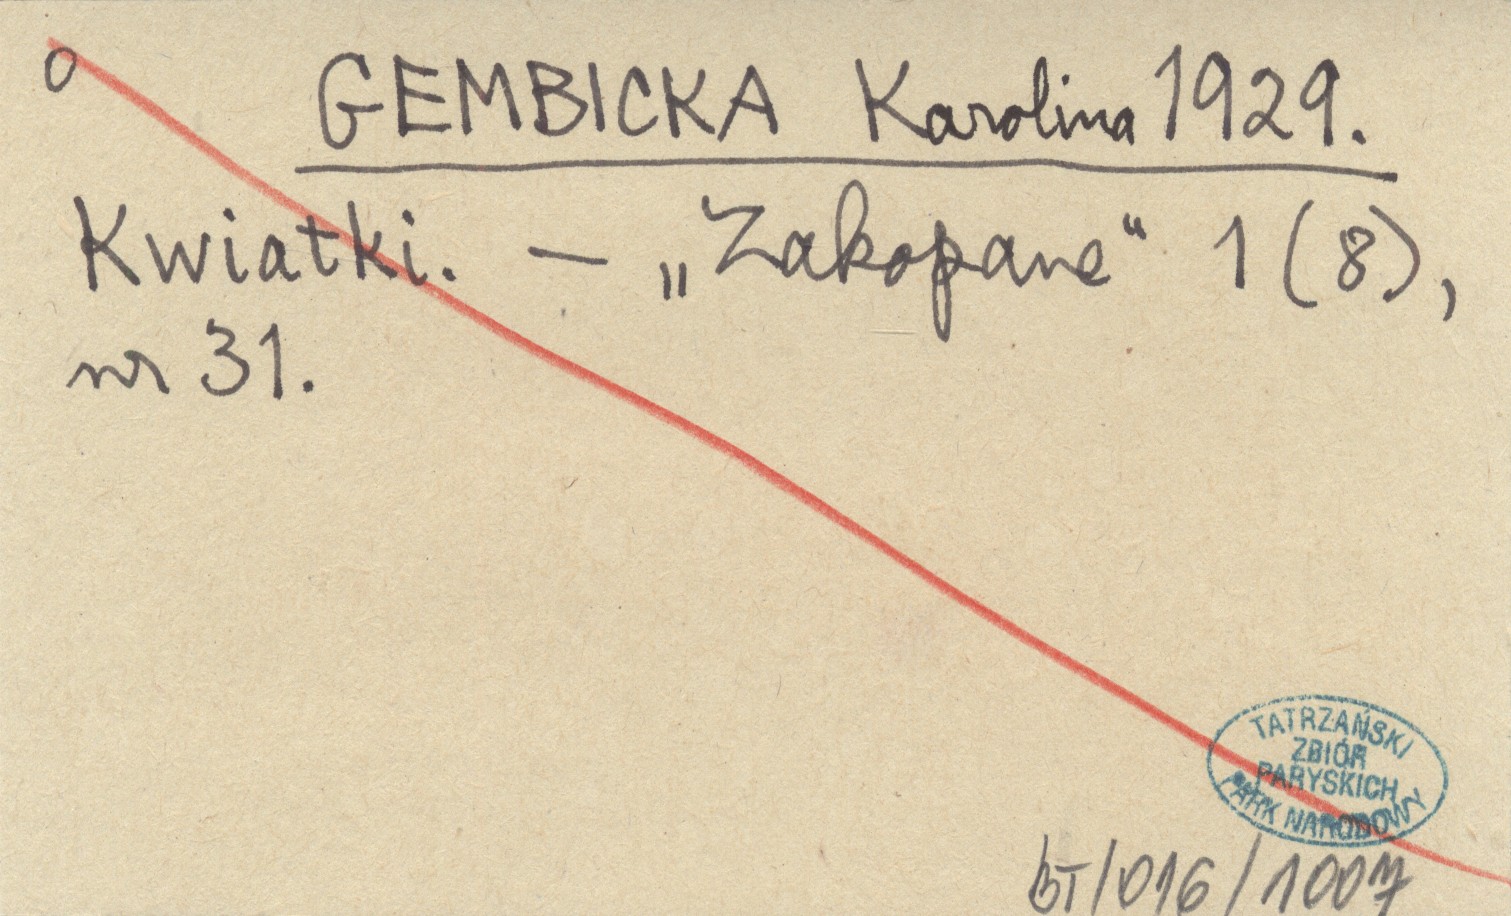 o GEMBICKA Karolina 1929.
Kwiatki. — „Zakopane“ 1 (8),
nr 31.
TATRZAŃSKI
ZBIÓR
PARYSKICH
PARK NARODOWY
BT/016/1007